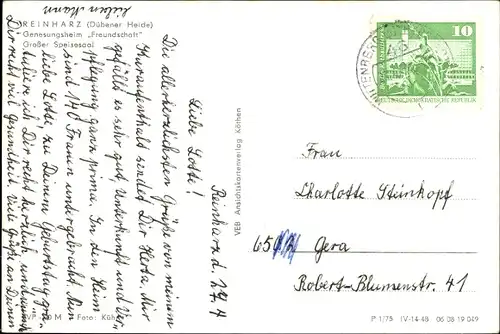 REINHARZ (Dübener Heide)
Genesungsheim „Freundschaft"
Großer Speisesaal
Reinharz d. 29.4
Liebe Lotte!
Die allerherzlichsten Grüße von meinem
Kuraufenthalt sendet Dir Herta. Mir
gefällt es sehr gut, Unterkunft und Ver
pflegung ganz prima. In dem Heim
sind 140 Frauen untergebracht. Nun
liebe Lotte, zu Deinem Geburtstag gra
tuliere ich Dir recht herzlich und wünsche
Dir recht viel Gesundheit. Viele Grüße an Deinen
lieben Mann
Foto: Kühn
VEB Ansichtskartenverlag Köthen
10
DEUTSCHE DEMOKRATISCHE REPUBLIK
Frau
Charlotte Steinkopf
65 Gera
Robert-Blumenstr. 41
P 1/75 IV-14-48 06 08 19 049